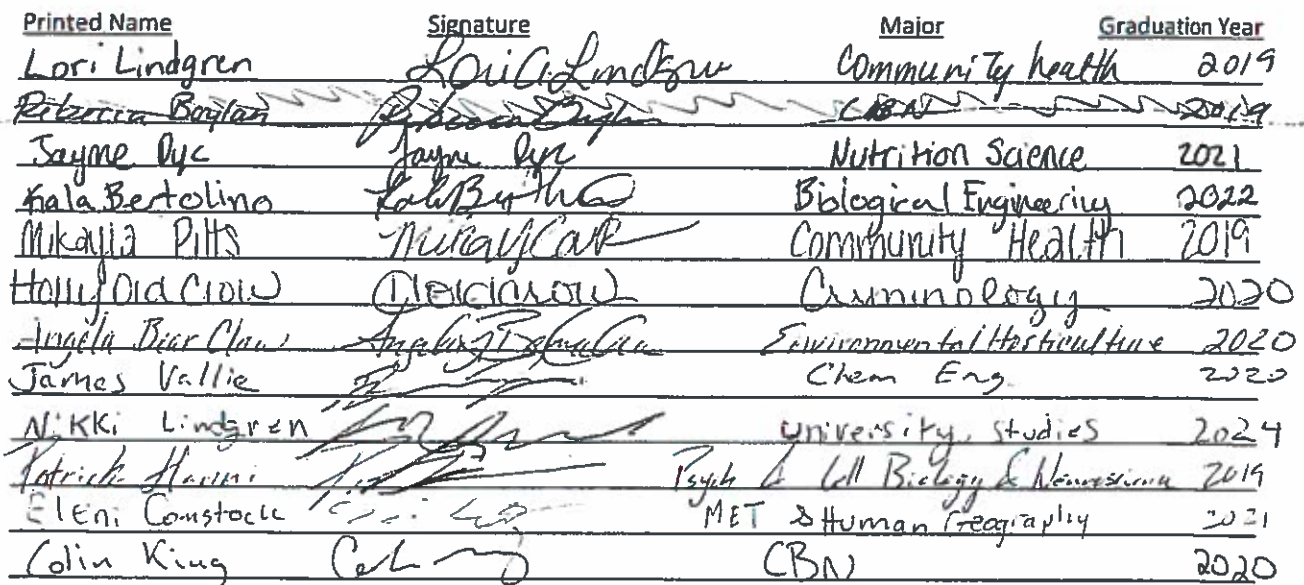 Printed Name Signature Major Graduation Year
Lori Lindgren Lori A Lindgren Community health 2019
Boylan CBN 2019
Jayme Dyc Jayme Dyc Nutrition Science 2021
Kala Bertolino Biological Engineering 2022
Mikayla Pitts Community Health 2019
Holly Old Crow Criminology 2020
Angela Bear Claw Environmental Horticulture 2020
James Vallie Chem Eng. 2020
Nikki Lindgren University studies 2024
Patrick Psych & Cell Biology & Neuroscience 2019
Eleni Comstock MET & Human Geography 2021
Colin King CBN 2020